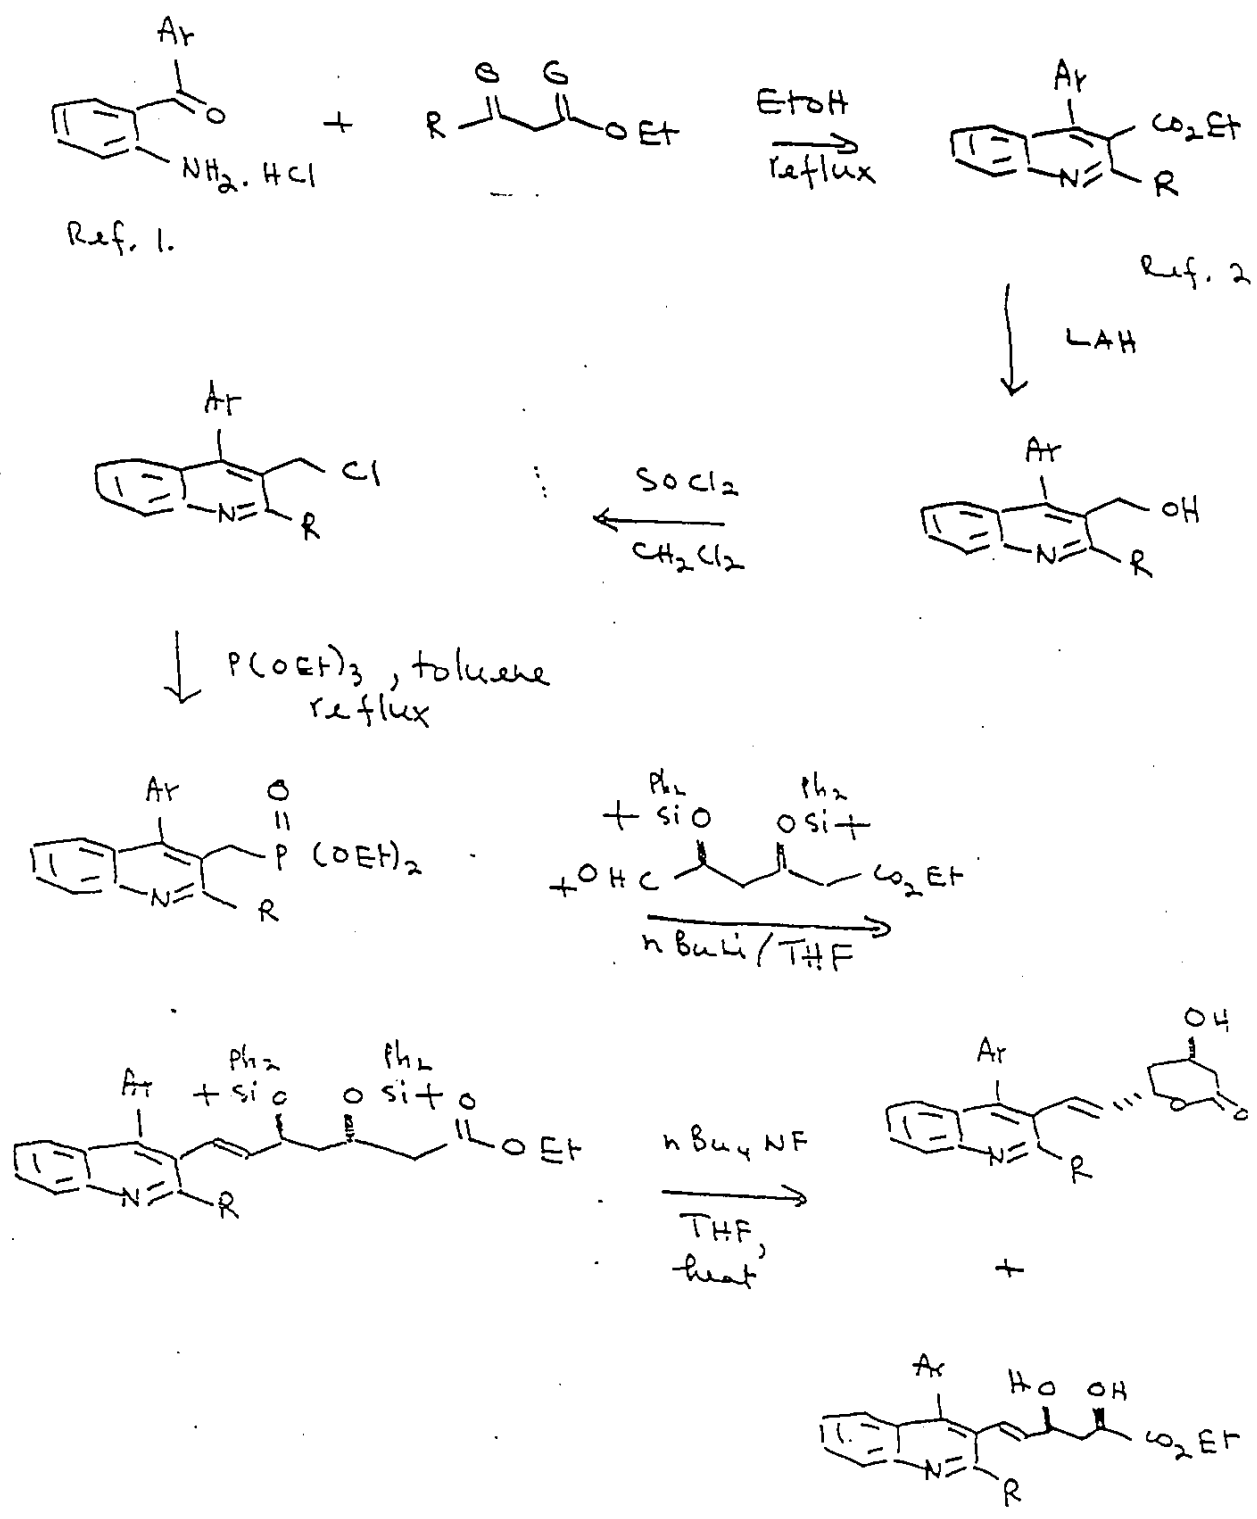 Ar
O
NH2.HCl
Ref. 1.
+
O O
R OEt
EtOH
reflux
Ar
CO2Et
N R
Ref. 2
LAH
Ar
OH
N R
SOCl2
CH2Cl2
Ar
Cl
N R
P(OEt)3, toluene
reflux
Ar O
P (OEt)2
N R
Ph2 Ph2
Si O O Si
+ OHC CO2Et
nBuLi/THF
Ar Ph2 Ph2
Si O O Si O
OEt
N R
nBu4NF
THF,
heat
OH
Ar
O O
N R
+
Ar HO OH
CO2Et
N R